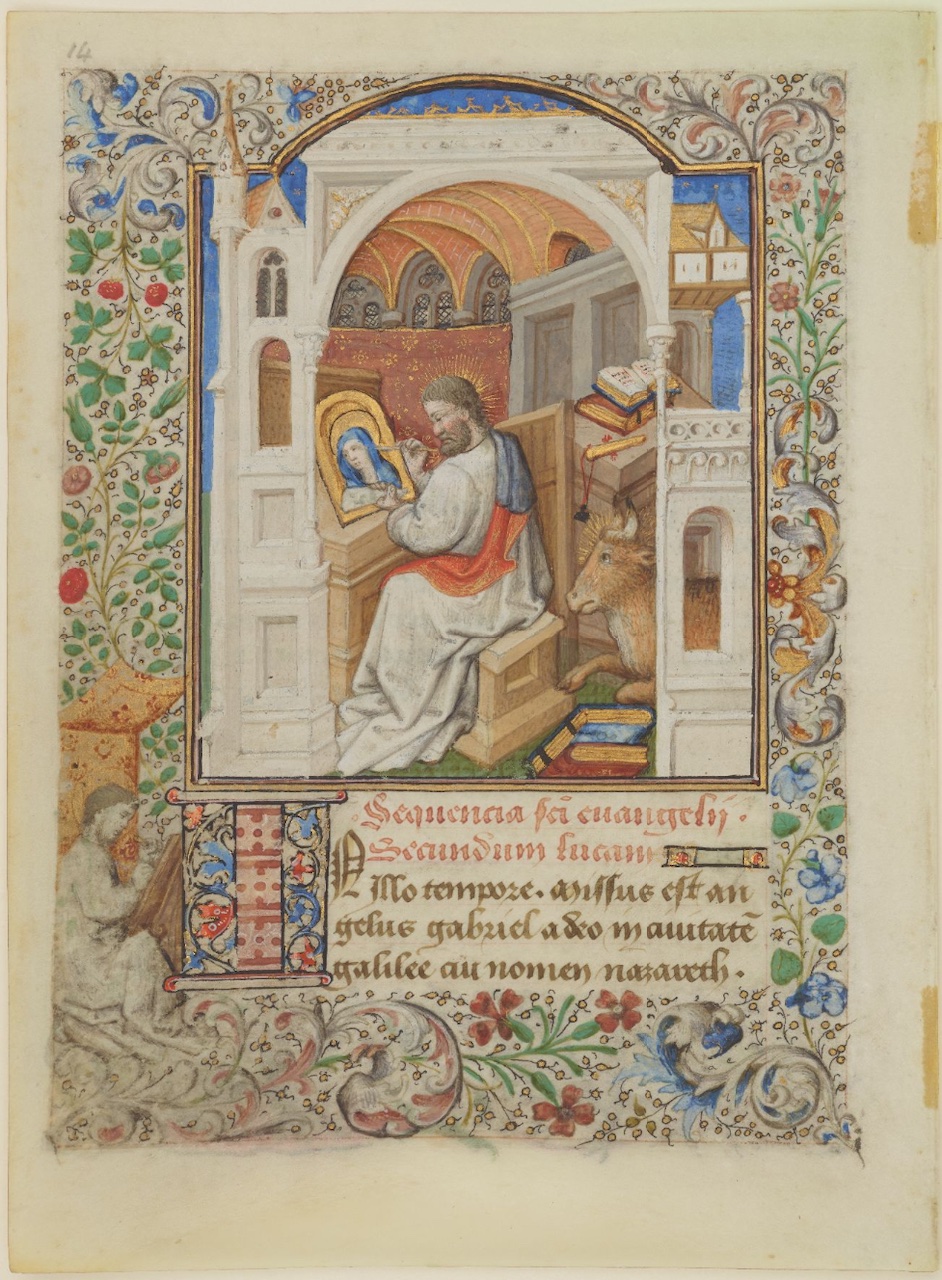 14
Sequencia sci euangelij.
Secundum lucam
In illo tempore. Missus est an
gelus gabriel a deo in ciuitatē
galilee cui nomen nazareth.